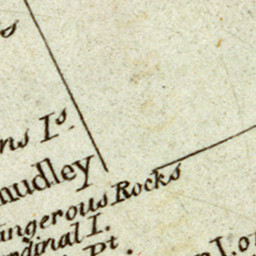 ns Is.
mudley
angerous Rocks
rdinal I.
Pt.
I. or